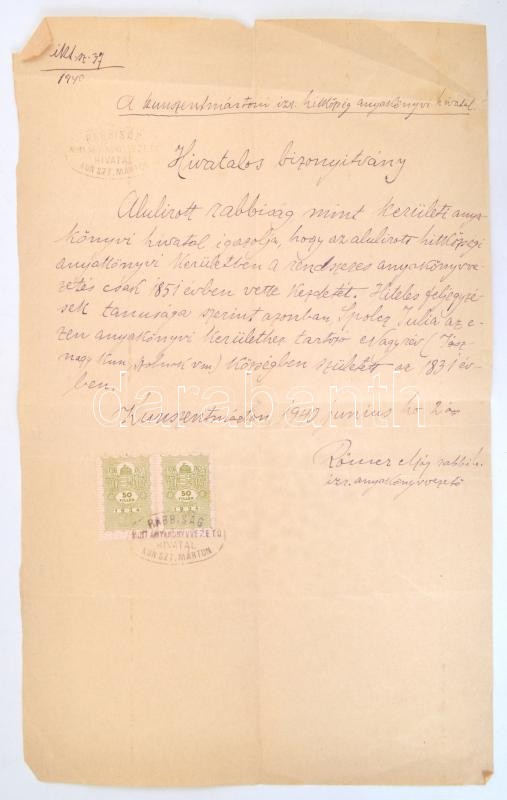 ikt. sz. 37
1940
A kunszentmártoni izr. hitközség anyakönyvi hivatal
RABBISÁG
MINT ANYAKÖNYVVEZETŐ
HIVATAL
KUN SZT. MÁRTON
Hivatalos bizonyitvány
Alulirott rabbiság mint kerületi anya-
könyvi hivatal igazolja, hogy az alulirott hitközségi
anyakönyvi kerületben a rendszeres anyakönyvve-
zetés csak 1851 évben vette kezdetét. Hiteles feljegyzé-
sek tanusága szerint azonban, Spolcz Julia az e-
zen anyakönyvi kerülethez tartozó Nagyrév (Jász-
nagykun Szolnok vm) községben született az 1831 év-
ben.
Kunszentmárton, 1940 junius hó 2
Römer rabbi h.
izr. anyakönyvvezető
50 50
FILLÉR FILLÉR
RABBISÁG
MINT ANYAKÖNYVVEZETŐ
HIVATAL
KUN SZT. MÁRTON
darabanth